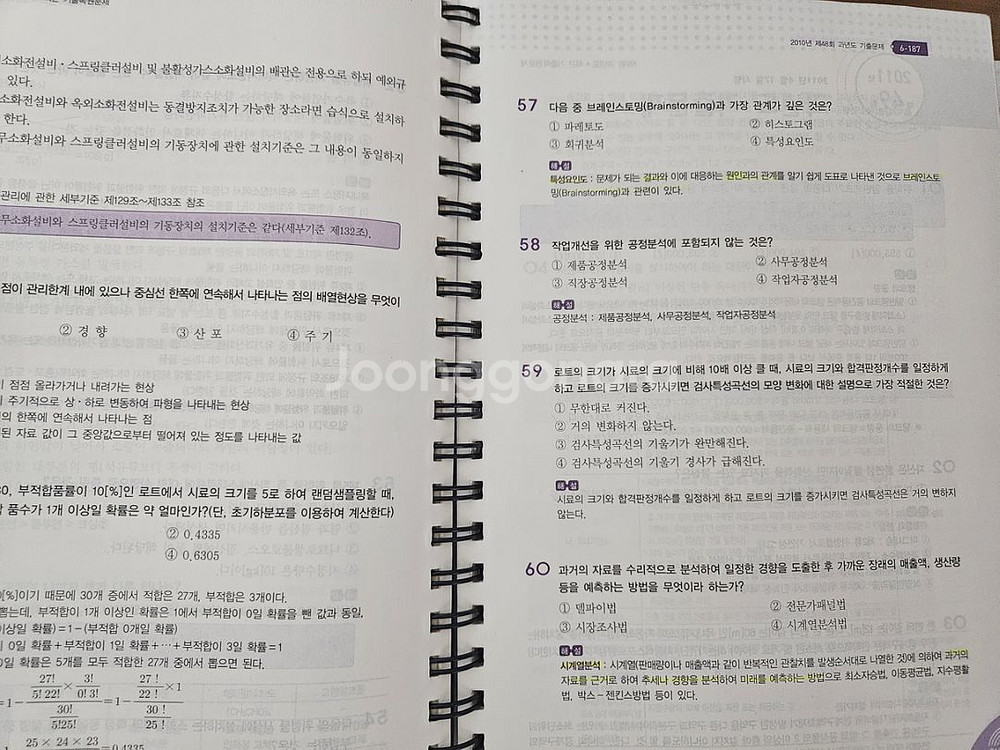 기출복원문제
소화전설비·스프링클러설비 및 불활성가스소화설비의 배관은 전용으로 하되 예외규
있다.
소화전설비와 옥외소화전설비는 동결방지조치가 가능한 장소라면 습식으로 설치하
한다.
무소화설비와 스프링클러설비의 기동장치에 관한 설치기준은 그 내용이 동일하지
관리에 관한 세부기준 제129조~제133조 참조
무소화설비와 스프링클러설비의 기동장치의 설치기준은 같다(세부기준 제132조).
점이 관리한계 내에 있으나 중심선 한쪽에 연속해서 나타나는 점의 배열현상을 무엇이
② 경 향 ③ 산 포 ④ 주 기
점점 올라가거나 내려가는 현상
주기적으로 상·하로 변동하여 파형을 나타내는 현상
의 한쪽에 연속해서 나타나는 점
된 자료 값이 그 중앙값으로부터 떨어져 있는 정도를 나타내는 값
30, 부적합품률이 10[%]인 로트에서 시료의 크기를 5로 하여 랜덤샘플링할 때,
품수가 1개 이상일 확률은 약 얼마인가?(단, 초기하분포를 이용하여 계산한다)
② 0.4335
④ 0.6305
[%]이기 때문에 30개 중에서 적합은 27개, 부적합은 3개이다.
뽑는데, 부적합이 1개 이상인 확률은 1에서 부적합이 0일 확률을 뺀 값과 동일.
이상일 확률)=1-(부적합 0개일 확률)
0일 확률+부적합이 1일 확률+…+부적합이 3일 확률=1
0일 확률은 5개를 모두 적합한 27개 중에서 뽑으면 된다.
27! 3! 27 !
5! 22! × 0! 3! 22 ! ×1
=1- =1-
30! 30 !
5!25! 25 !
25 × 24 × 23
=0.4335
2010년 제48회 과년도 기출문제 6-187
57 다음 중 브레인스토밍(Brainstorming)과 가장 관계가 깊은 것은?
① 파레토도 ② 히스토그램
③ 회귀분석 ④ 특성요인도
해설
특성요인도 : 문제가 되는 결과와 이에 대응하는 원인과의 관계를 알기 쉽게 도표로 나타낸 것으로 브레인스토
밍(Brainstorming)과 관련이 있다.
58 작업개선을 위한 공정분석에 포함되지 않는 것은?
① 제품공정분석 ② 사무공정분석
③ 직장공정분석 ④ 작업자공정분석
해설
공정분석 : 제품공정분석, 사무공정분석, 작업자공정분석
59 로트의 크기가 시료의 크기에 비해 10배 이상 클 때, 시료의 크기와 합격판정개수를 일정하게
하고 로트의 크기를 증가시키면 검사특성곡선의 모양 변화에 대한 설명으로 가장 적절한 것은?
① 무한대로 커진다.
② 거의 변화하지 않는다.
③ 검사특성곡선의 기울기가 완만해진다.
④ 검사특성곡선의 기울기 경사가 급해진다.
해설
시료의 크기와 합격판정개수를 일정하게 하고 로트의 크기를 증가시키면 검사특성곡선은 거의 변하지
않는다.
60 과거의 자료를 수리적으로 분석하여 일정한 경향을 도출한 후 가까운 장래의 매출액, 생산량
등을 예측하는 방법을 무엇이라 하는가?
① 델파이법 ② 전문가패널법
③ 시장조사법 ④ 시계열분석법
해설
시계열분석 : 시계열(판매량이나 매출액과 같이 반복적인 관찰치를 발생순서대로 나열한 것)에 의하여 과거의
자료를 근거로 하여 추세나 경향을 분석하여 미래를 예측하는 방법으로 최소자승법, 이동평균법, 지수평활
법, 박스-젠킨스방법 등이 있다.